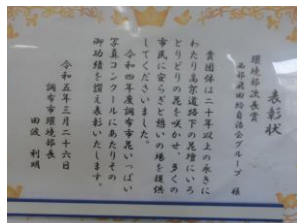 表彰状
環境部次長賞
西部飛田給自治会グループ 様
貴団体は二十年以上の永きに
わたり高架道路下の花壇にいろ
とりどりの花を咲かせ、多くの
市民に安らぎと憩いの場を提供
してくださいました。
令和四年度調布市花いっぱい
写真コンクールにあたりその
御功績を讃え表彰いたします。
令和五年三月二十六日
調布市環境部長
田波 利明